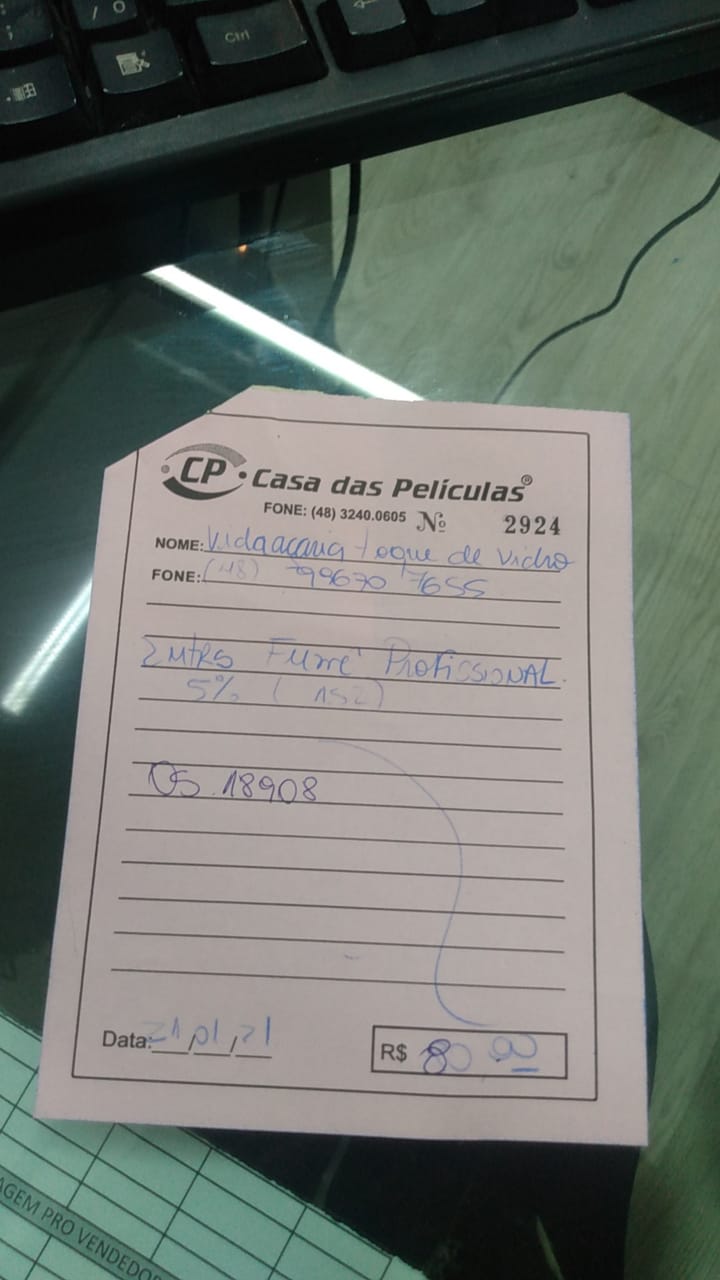 / O
Ctrl
CP Casa das Películas®
FONE: (48) 3240.0605 Nº 2924
NOME: Vidraçaria toque de vidro
FONE: (48) 99670 7655
2 mtrs Fumê Profissional
5% (152)
OS 18908
Data: 21/01/21
R$ 80,00
AGEM PRO VENDEDO